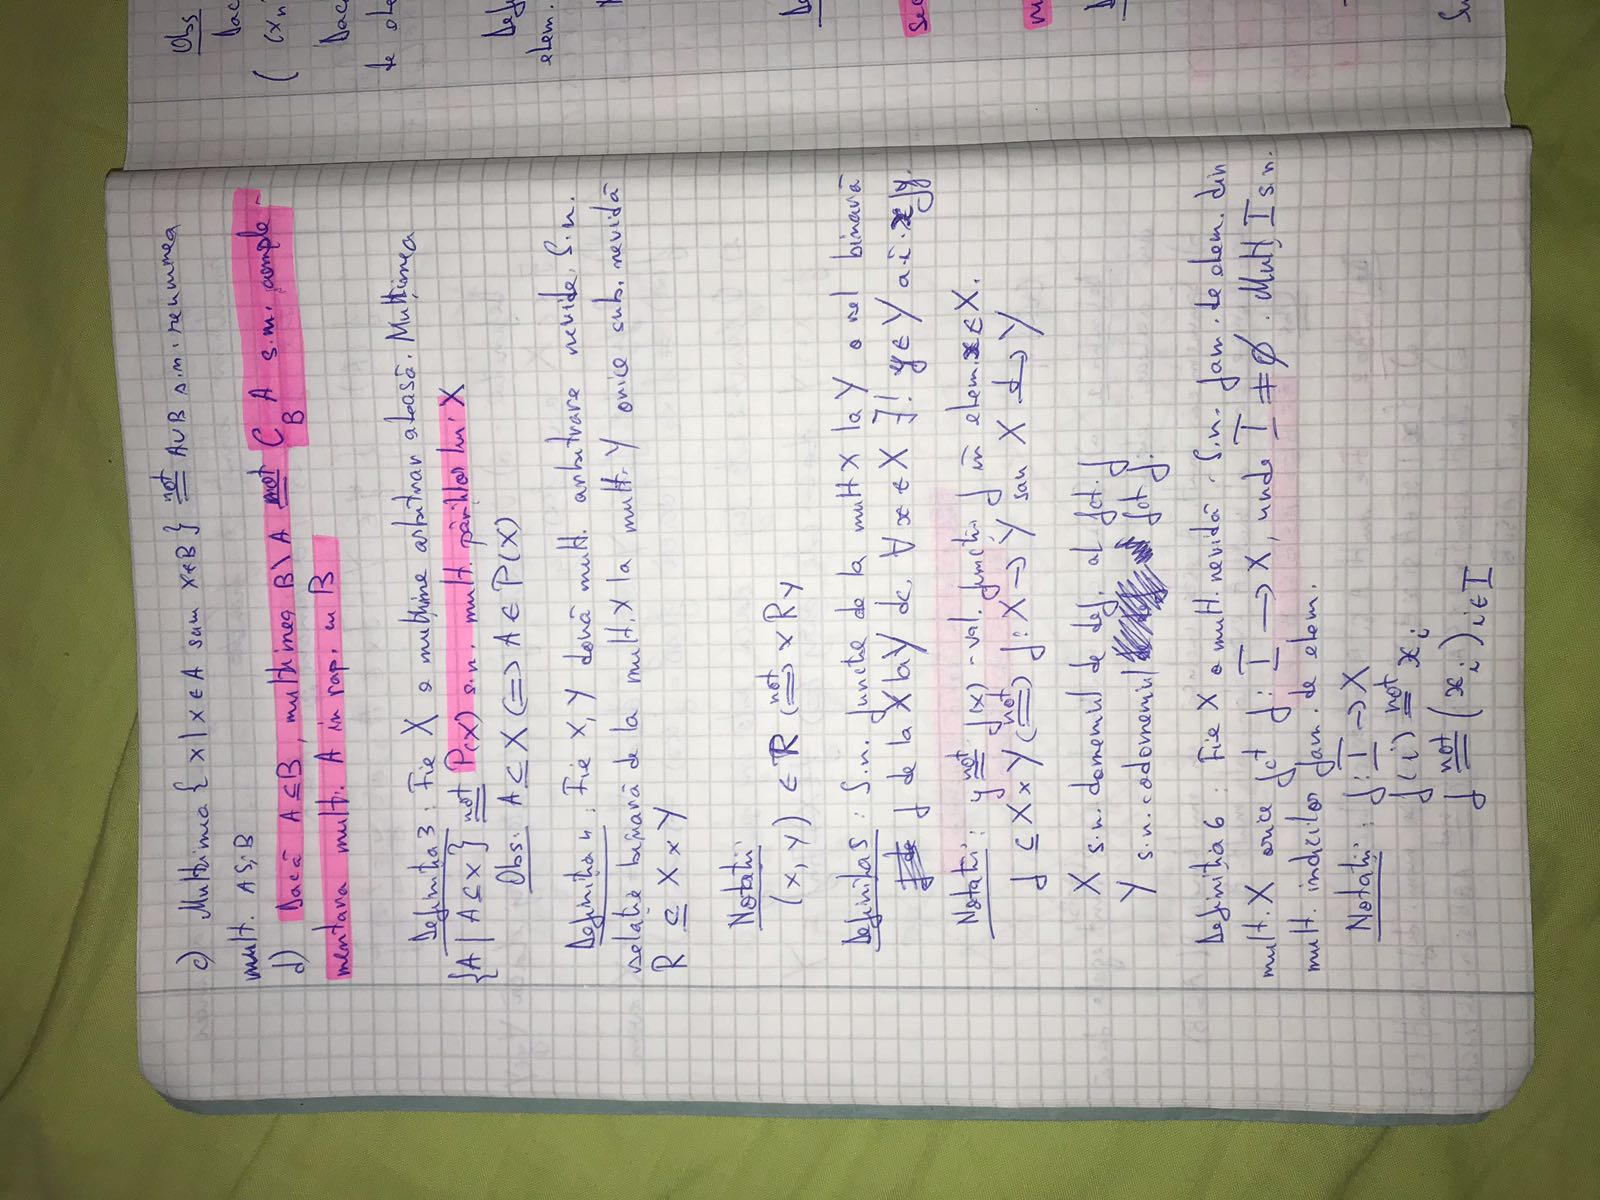 c) Mulțimea { x | x ∈ A sau x ∈ B } not= A∪B s.n. reuniunea
mult. A și B
d) Dacă A ⊆ B, mulțimea B \ A not= C_B A s.m. comple-
mentara mult. A în rap. cu B
Definiția 3: Fie X o mulțime arbitrar aleasă. Mulțimea
{A | A ⊆ X} not= P(X) s.n. mult. părților lui X
Obs: A ⊆ X ⟺ A ∈ P(X)
Definiția 4: Fie X, Y două mult. arbitrare nevide. S.n.
relație binară de la mult. X la mult. Y orice sub. nevidă
R ⊆ X × Y
Notații:
(x, y) ∈ R (not⟺) x R y
Definiția 5: S.n. funcție de la mult X la Y o rel binară
f de la X la Y dc. ∀ x ∈ X ∃! y ∈ Y a.î. x f y.
Notații: y not= f(x) - val. funcții f în elem. x ∈ X.
f ⊆ X × Y (not⟺) f: X → Y sau X f→ Y
X s.n. domeniul de def. al fct. f
Y s.n. codomeniul fct f.
Definiția 6: Fie X o mult. nevidă. S.n. fam. de elem. din
mult. X orice fct f: I → X, unde I ≠ ∅. Mult, I s.n.
mult. indicilor fam. de elem.
Notații: f: I → X
f(i) not= x_i
f not= (x_i)_{i∈I}
Obs
Dac
(x_n
Dac
de ele
Def
elem.